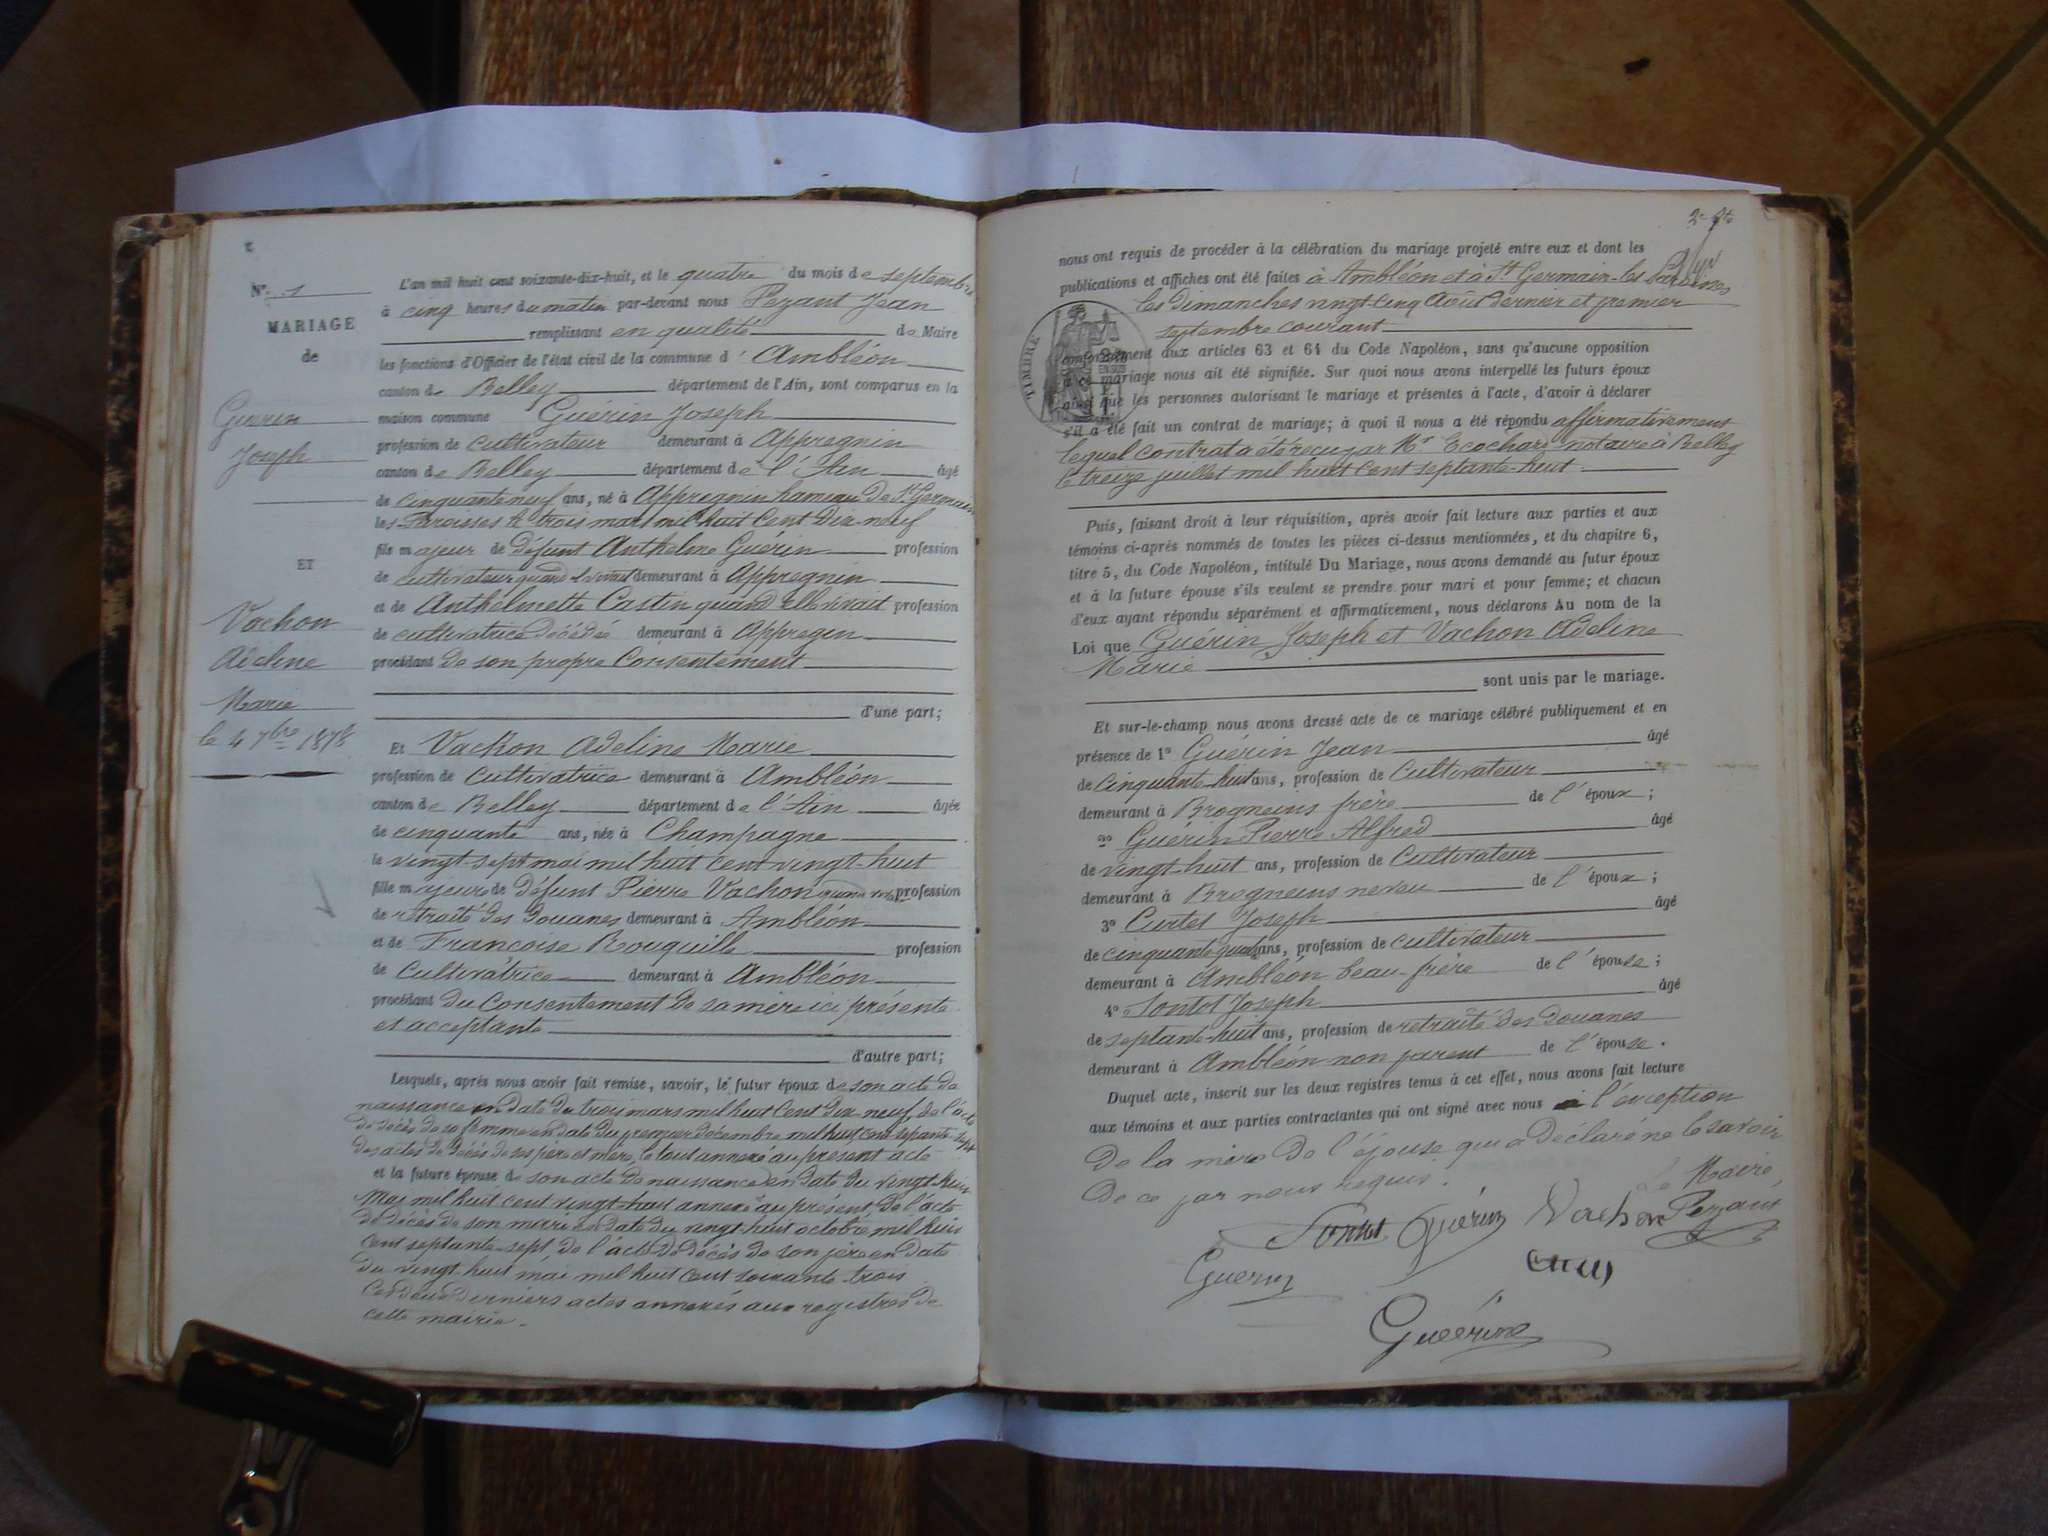 N° 1
MARIAGE
de
Guerin
Joseph
ET
Vachon
Adeline
Marie
le 4 7bre 1878
L'an mil huit cent soixante-dix-huit, et le quatre du mois de septembre
à cinq heures du matin par-devant nous Pezant Jean
remplissant en qualité de Maire
les fonctions d'Officier de l'état civil de la commune d' Ambléon
canton de Belley département de l'Ain, sont comparus en la
maison commune Guérin Joseph
profession de cultivateur demeurant à Appregnin
canton de Belley département de l'Ain âgé
de cinquante neuf ans, né à Appregnin hameau de St Germain
les Paroisses le trois mars mil huit cent dix-neuf
fils majeur de défunt Anthelme Guérin profession
de cultivateur quand il vivait demeurant à Appregnin
et de Anthelmette Castin quand elle vivait profession
de cultivatrice décédée demeurant à Appregin
procédant de son propre consentement
d'une part;
Et Vachon Adeline Marie
profession de cultivatrice demeurant à Ambléon
canton de Belley département de l'Ain âgée
de cinquante ans, née à Champagne
le vingt-sept mai mil huit cent vingt-huit
fille majeure de défunt Pierre Vachon quand profession
de retraité des douanes demeurant à Ambléon
et de Francoise Rouquille profession
de cultivatrice demeurant à Ambléon
procédant du consentement de sa mère ici présente
et acceptante
d'autre part;
Lesquels, après nous avoir fait remise, savoir, le futur époux de son acte de
naissance en date du trois mars mil huit cent dix-neuf, de l'acte
de décès de sa femme en date du premier décembre mil huit cent septante-sept
des actes de décès de ses père et mère, le tout annexé au présent acte
et la future épouse de son acte de naissance en date du vingt-huit
mai mil huit cent vingt-huit annexé au présent, de l'acte
de décès de son mari en date du vingt-huit octobre mil huit
cent septante-sept, de l'acte de décès de son père en date
du vingt-huit mai mil huit cent soixante-trois
Ces deux derniers actes annexés aux registres de
cette mairie.
nous ont requis de procéder à la célébration du mariage projeté entre eux et dont les
publications et affiches ont été faites à Ambléon et à St Germain-les Paroisses
les Dimanches vingt cinq Août dernier et premier
septembre courant
TIMBRE
conformément aux articles 63 et 64 du Code Napoléon, sans qu'aucune opposition
à ce mariage nous ait été signifiée. Sur quoi nous avons interpellé les futurs époux
ainsi que les personnes autorisant le mariage et présentes à l'acte, d'avoir à déclarer
s'il a été fait un contrat de mariage; à quoi il nous a été répondu affirmativement
lequel contrat a été reçu par Mr Ecochard notaire à Belley
le treize juillet mil huit cent septante-huit
Puis, faisant droit à leur réquisition, après avoir fait lecture aux parties et aux
témoins ci-après nommés de toutes les pièces ci-dessus mentionnées, et du chapitre 6,
titre 5, du Code Napoléon, intitulé Du Mariage, nous avons demandé au futur époux
et à la future épouse s'ils veulent se prendre pour mari et pour femme; et chacun
d'eux ayant répondu séparément et affirmativement, nous déclarons Au nom de la
Loi que Guérin Joseph et Vachon Adeline
Marie
sont unis par le mariage.
Et sur-le-champ nous avons dressé acte de ce mariage célébré publiquement et en
présence de 1° Guérin Jean âgé
de cinquante-huit ans, profession de cultivateur
demeurant à Brogneins frère de l'époux;
2° Guérin Pierre Alfred âgé
de vingt-huit ans, profession de Cultivateur
demeurant à Brogneins neveu de l'époux;
3° Curtet Joseph âgé
de cinquante quatre ans, profession de cultivateur
demeurant à Ambléon beau-frère de l'épouse;
4° Sontot Joseph âgé
de septante-huit ans, profession de retraité des douanes
demeurant à Ambléon non parent de l'épouse.
Duquel acte, inscrit sur les deux registres tenus à cet effet, nous avons fait lecture
aux témoins et aux parties contractantes qui ont signé avec nous à l'exception
de la mère de l'épouse qui a déclaré ne le savoir
de ce par nous requis.
Le Maire
Guérin Vachon Pezant
Guerin
Guérin